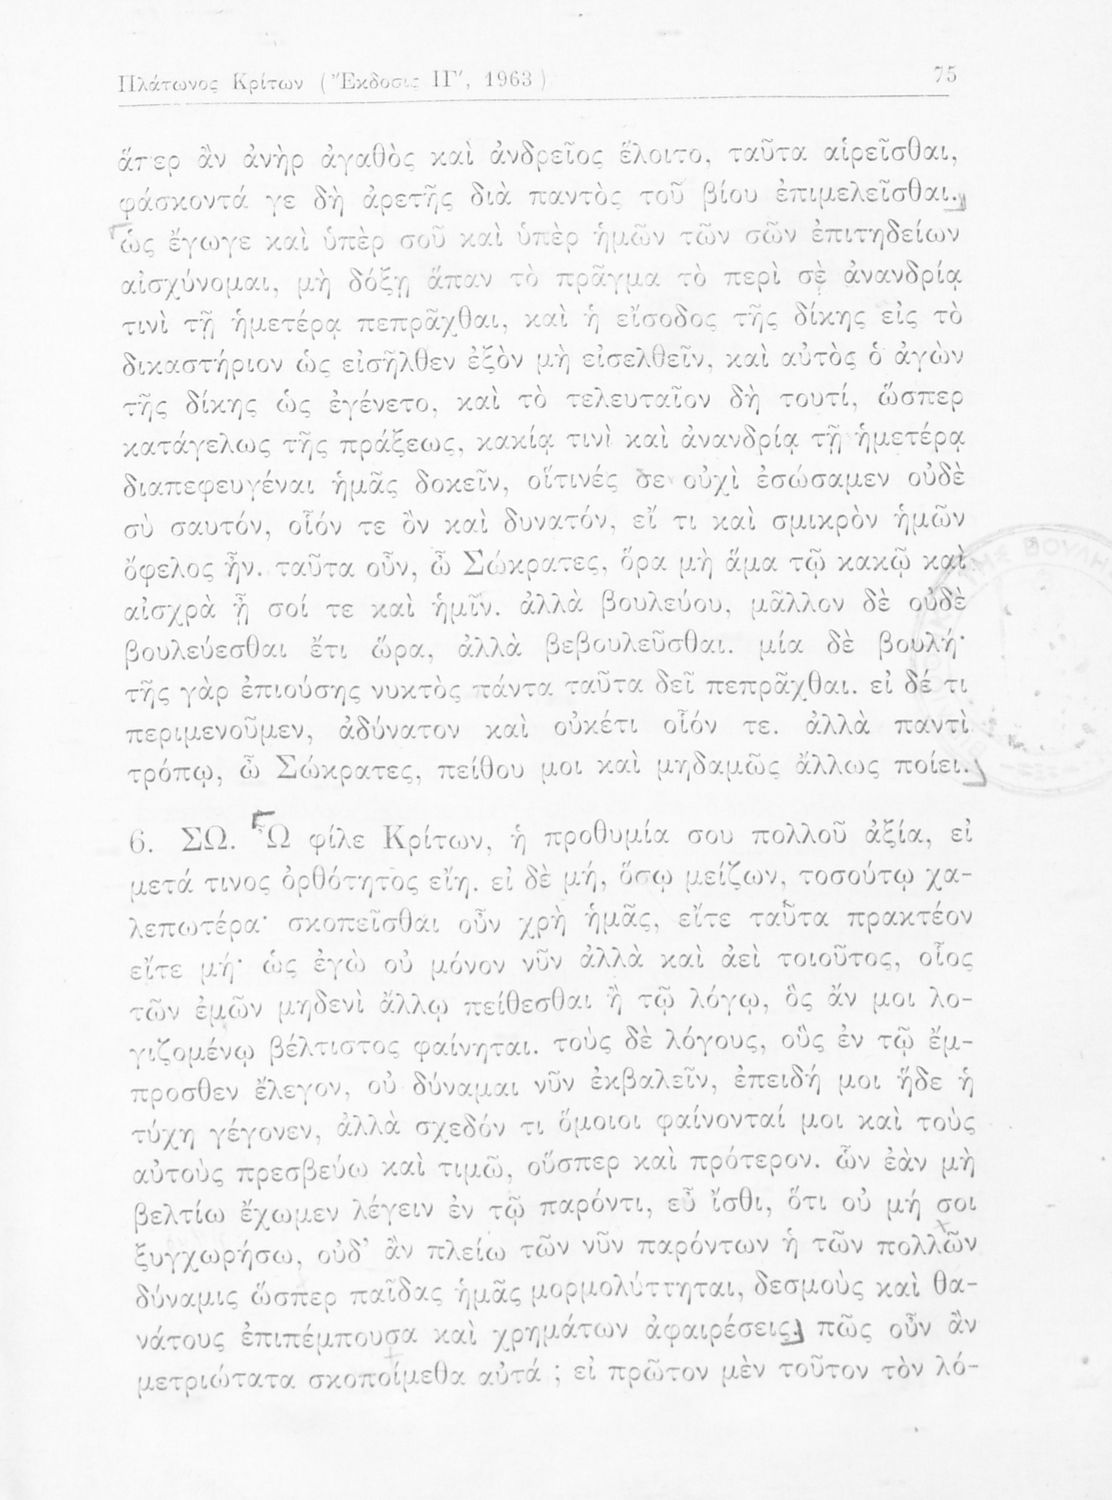 Πλάτωνος Κρίτων (Ἔκδοσις ΙΓ′, 1963)
75
ἅπερ ἂν ἀνὴρ ἀγαθὸς καὶ ἀνδρεῖος ἕλοιτο, ταῦτα αἱρεῖσθαι,
φάσκοντά γε δὴ ἀρετῆς διὰ παντὸς τοῦ βίου ἐπιμελεῖσθαι.
ὡς ἔγωγε καὶ ὑπὲρ σοῦ καὶ ὑπὲρ ἡμῶν τῶν σῶν ἐπιτηδείων
αἰσχύνομαι, μὴ δόξῃ ἅπαν τὸ πρᾶγμα τὸ περὶ σὲ ἀνανδρίᾳ
τινὶ τῇ ἡμετέρᾳ πεπρᾶχθαι, καὶ ἡ εἴσοδος τῆς δίκης εἰς τὸ
δικαστήριον ὡς εἰσῆλθεν ἐξὸν μὴ εἰσελθεῖν, καὶ αὐτὸς ὁ ἀγὼν
τῆς δίκης ὡς ἐγένετο, καὶ τὸ τελευταῖον δὴ τουτί, ὥσπερ
κατάγελως τῆς πράξεως, κακίᾳ τινὶ καὶ ἀνανδρίᾳ τῇ ἡμετέρᾳ
διαπεφευγέναι ἡμᾶς δοκεῖν, οἵτινές σε οὐχὶ ἐσώσαμεν οὐδὲ
σὺ σαυτόν, οἷόν τε ὂν καὶ δυνατόν, εἴ τι καὶ σμικρὸν ἡμῶν
ὄφελος ἦν. ταῦτα οὖν, ὦ Σώκρατες, ὅρα μὴ ἅμα τῷ κακῷ καὶ
αἰσχρὰ ᾖ σοί τε καὶ ἡμῖν. ἀλλὰ βουλεύου, μᾶλλον δὲ οὐδὲ
βουλεύεσθαι ἔτι ὥρα, ἀλλὰ βεβουλεῦσθαι. μία δὲ βουλή·
τῆς γὰρ ἐπιούσης νυκτὸς πάντα ταῦτα δεῖ πεπρᾶχθαι. εἰ δέ τι
περιμενοῦμεν, ἀδύνατον καὶ οὐκέτι οἷόν τε. ἀλλὰ παντὶ
τρόπῳ, ὦ Σώκρατες, πείθου μοι καὶ μηδαμῶς ἄλλως ποίει.
6. ΣΩ. Ὦ φίλε Κρίτων, ἡ προθυμία σου πολλοῦ ἀξία, εἰ
μετά τινος ὀρθότητος εἴη. εἰ δὲ μή, ὅσῳ μείζων, τοσούτῳ χα-
λεπωτέρα· σκοπεῖσθαι οὖν χρὴ ἡμᾶς, εἴτε ταῦτα πρακτέον
εἴτε μή· ὡς ἐγὼ οὐ μόνον νῦν ἀλλὰ καὶ ἀεὶ τοιοῦτος, οἷος
τῶν ἐμῶν μηδενὶ ἄλλῳ πείθεσθαι ἢ τῷ λόγῳ, ὃς ἄν μοι λο-
γιζομένῳ βέλτιστος φαίνηται. τοὺς δὲ λόγους, οὓς ἐν τῷ ἔμ-
προσθεν ἔλεγον, οὐ δύναμαι νῦν ἐκβαλεῖν, ἐπειδή μοι ἥδε ἡ
τύχη γέγονεν, ἀλλὰ σχεδόν τι ὅμοιοι φαίνονταί μοι καὶ τοὺς
αὐτοὺς πρεσβεύω καὶ τιμῶ, οὕσπερ καὶ πρότερον. ὧν ἐὰν μὴ
βελτίω ἔχωμεν λέγειν ἐν τῷ παρόντι, εὖ ἴσθι, ὅτι οὐ μή σοι
ξυγχωρήσω, οὐδ' ἂν πλείω τῶν νῦν παρόντων ἡ τῶν πολλῶν
δύναμις ὥσπερ παῖδας ἡμᾶς μορμολύττηται, δεσμοὺς καὶ θα-
νάτους ἐπιπέμπουσα καὶ χρημάτων ἀφαιρέσεις. πῶς οὖν ἂν
μετριώτατα σκοποίμεθα αὐτά ; εἰ πρῶτον μὲν τοῦτον τὸν λό-